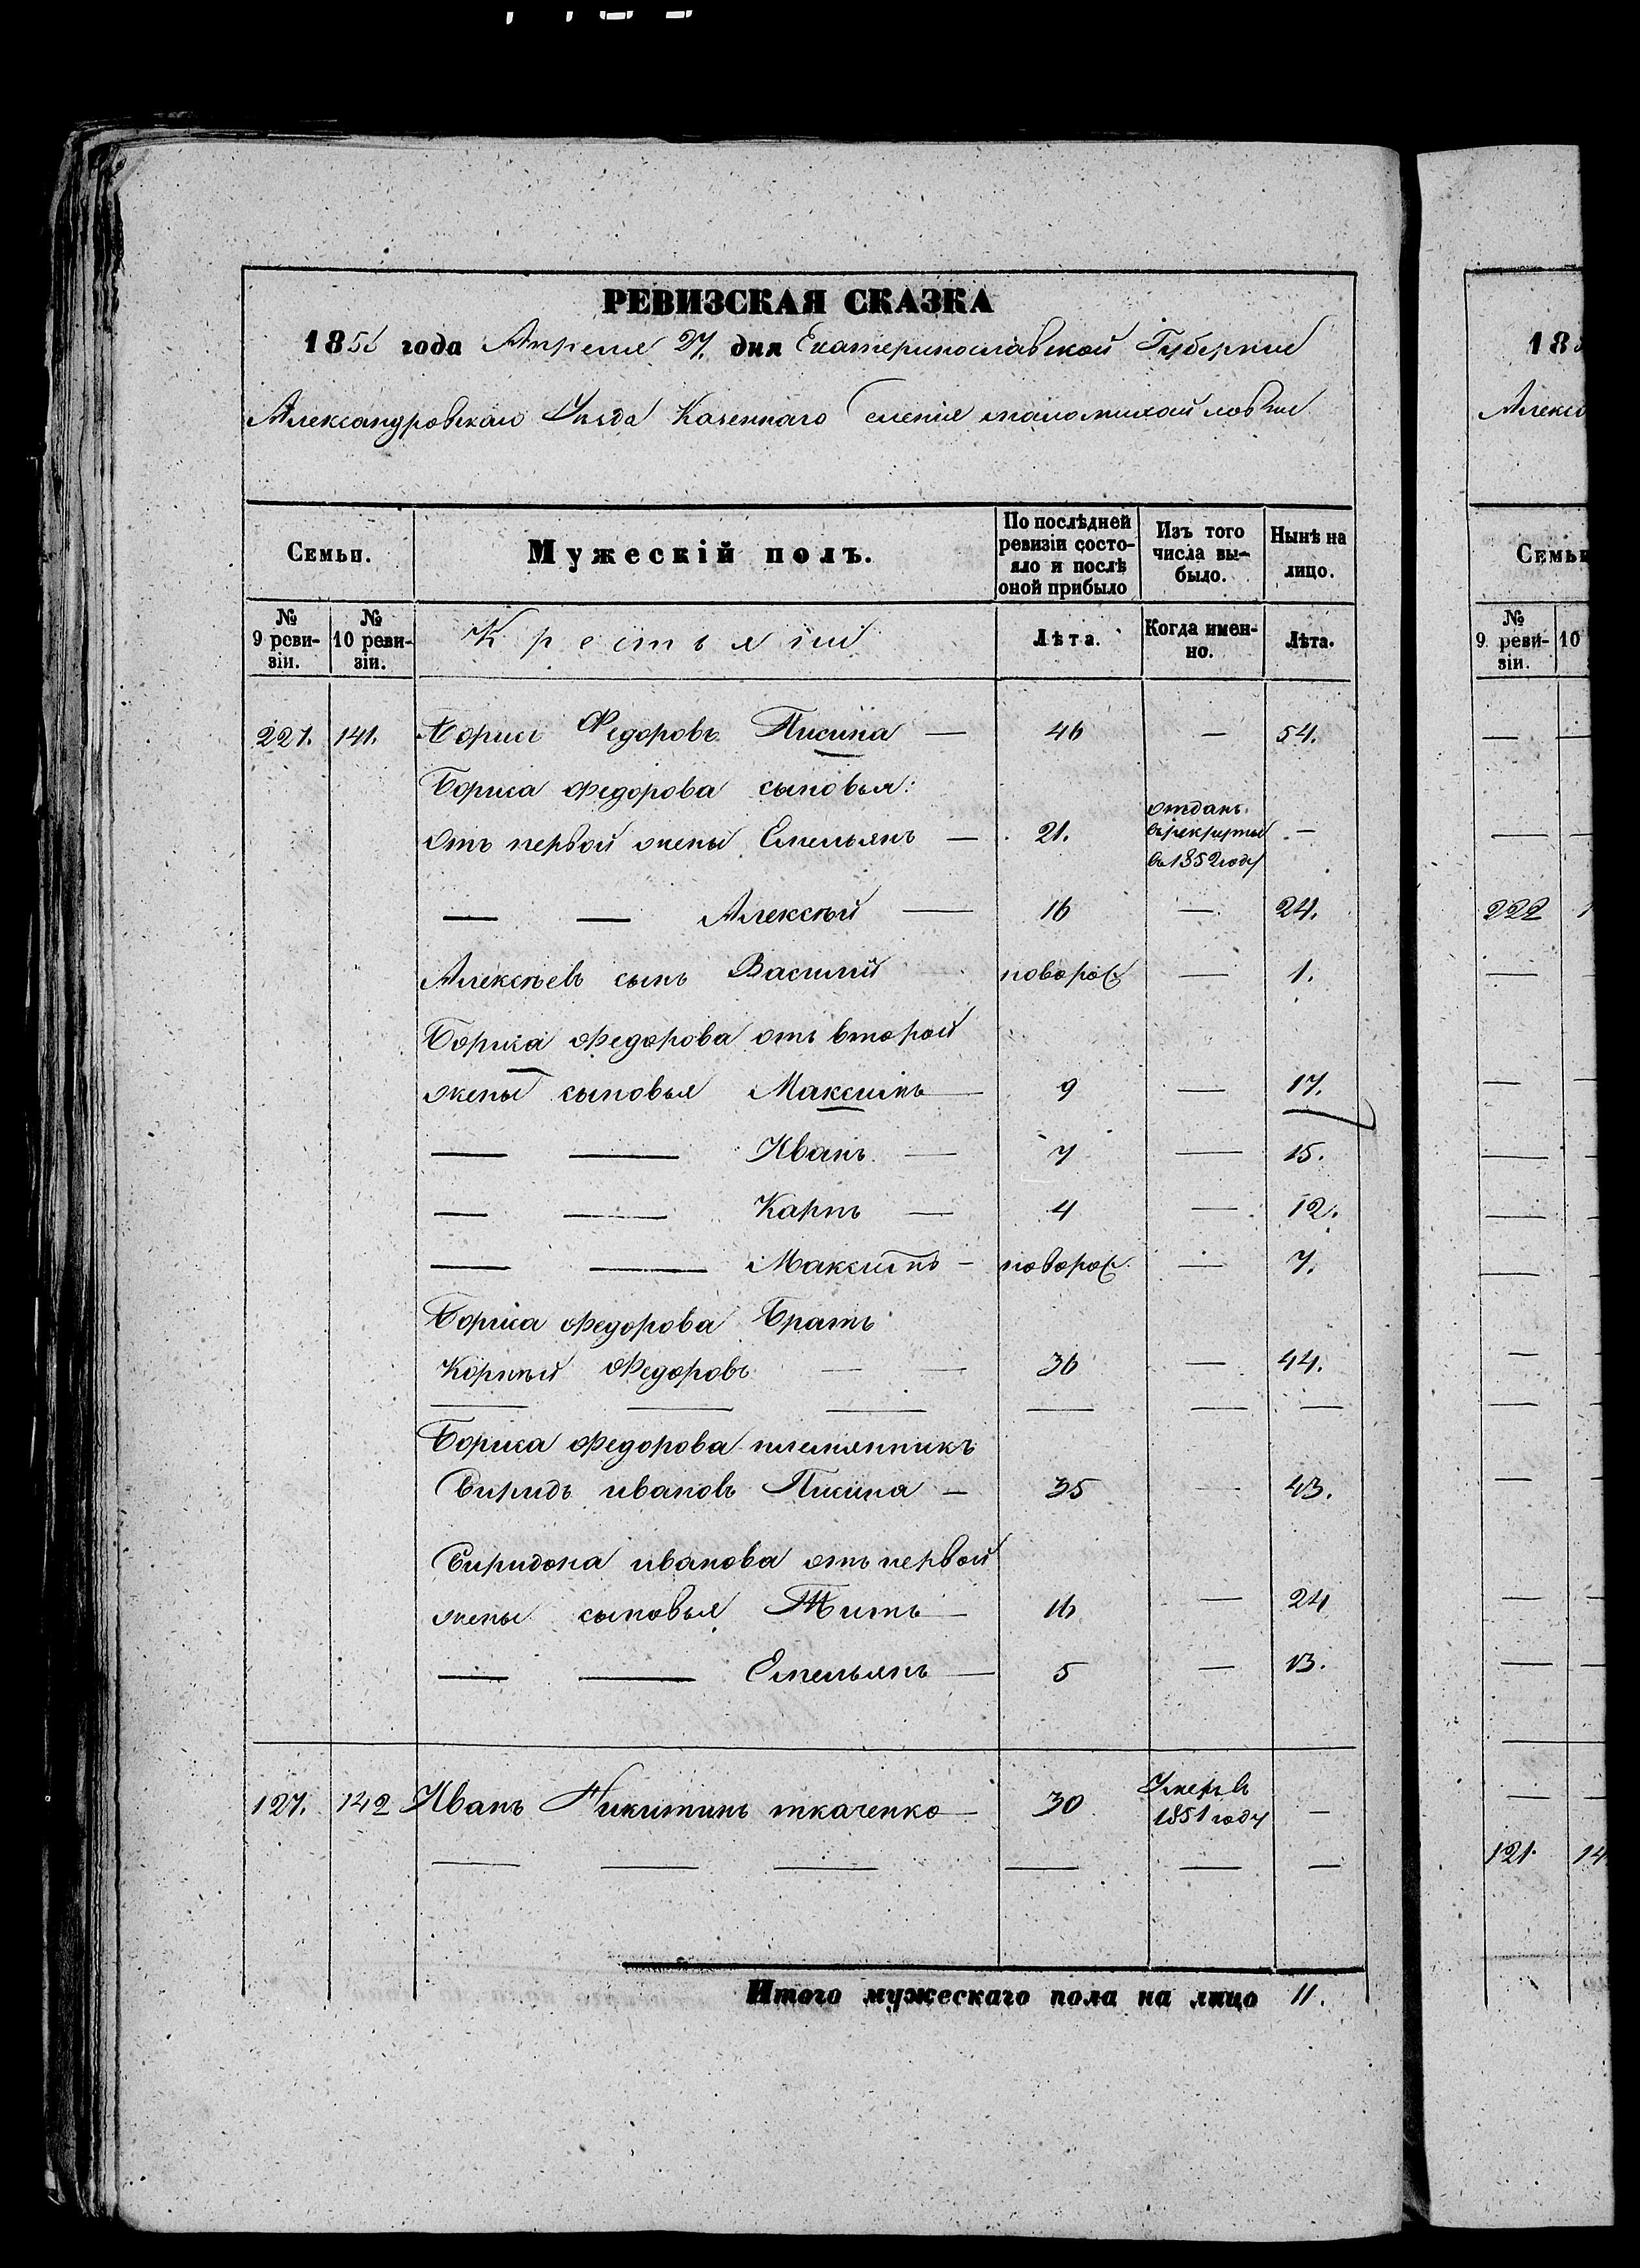 РЕВИЗСКАЯ СКАЗКА
1858 года Апреля 27. дня Екатеринославской Губернии
Александровскаго Уѣзда Казеннаго Селенія маломихайловки
Семьи.
Мужескій полъ.
По послѣдней ревизіи состояло и послѣ оной прибыло
Изъ того числа выбыло.
Нынѣ на лицо.
№ 9 ревизіи.
№ 10 ревизіи.
Крестьяни
Лѣта.
Когда именно.
Лѣта.
221. 141. Борисъ Федоровъ Писина — 46 — 54.
Бориса Федорова сыновья:
Отъ первой жены Емельянъ — 21. отданъ въ рекруты въ 1852 году —
— — Алексѣй — 16 — 24.
Алексѣевъ сынъ Василій новорож — 1.
Бориса Федорова отъ второй
жены сыновья Максимъ — 9 — 17.
— — Иванъ — 7 — 15.
— — Карпъ — 4 — 12.
— — Максимъ — новорож. — 7.
Бориса Федорова Братъ
Корнѣй Федоровъ — — 36 — 44.
— — — — — —
Бориса Федорова племянникъ
Спиридъ ивановъ Писина — 35 — 43.
Спиридона иванова отъ первой
жены сыновья Титъ — 16 — 24
— — Емельянъ — 5 — 13.
127. 142 Иванъ Никитинъ ткаченко — 30 Умеръ въ 1851 году —
— — — — — —
Итого мужескаго пола на лицо 11.
18
Алекс
Семьи
№ 9 ревизіи.
10
222
121. 14